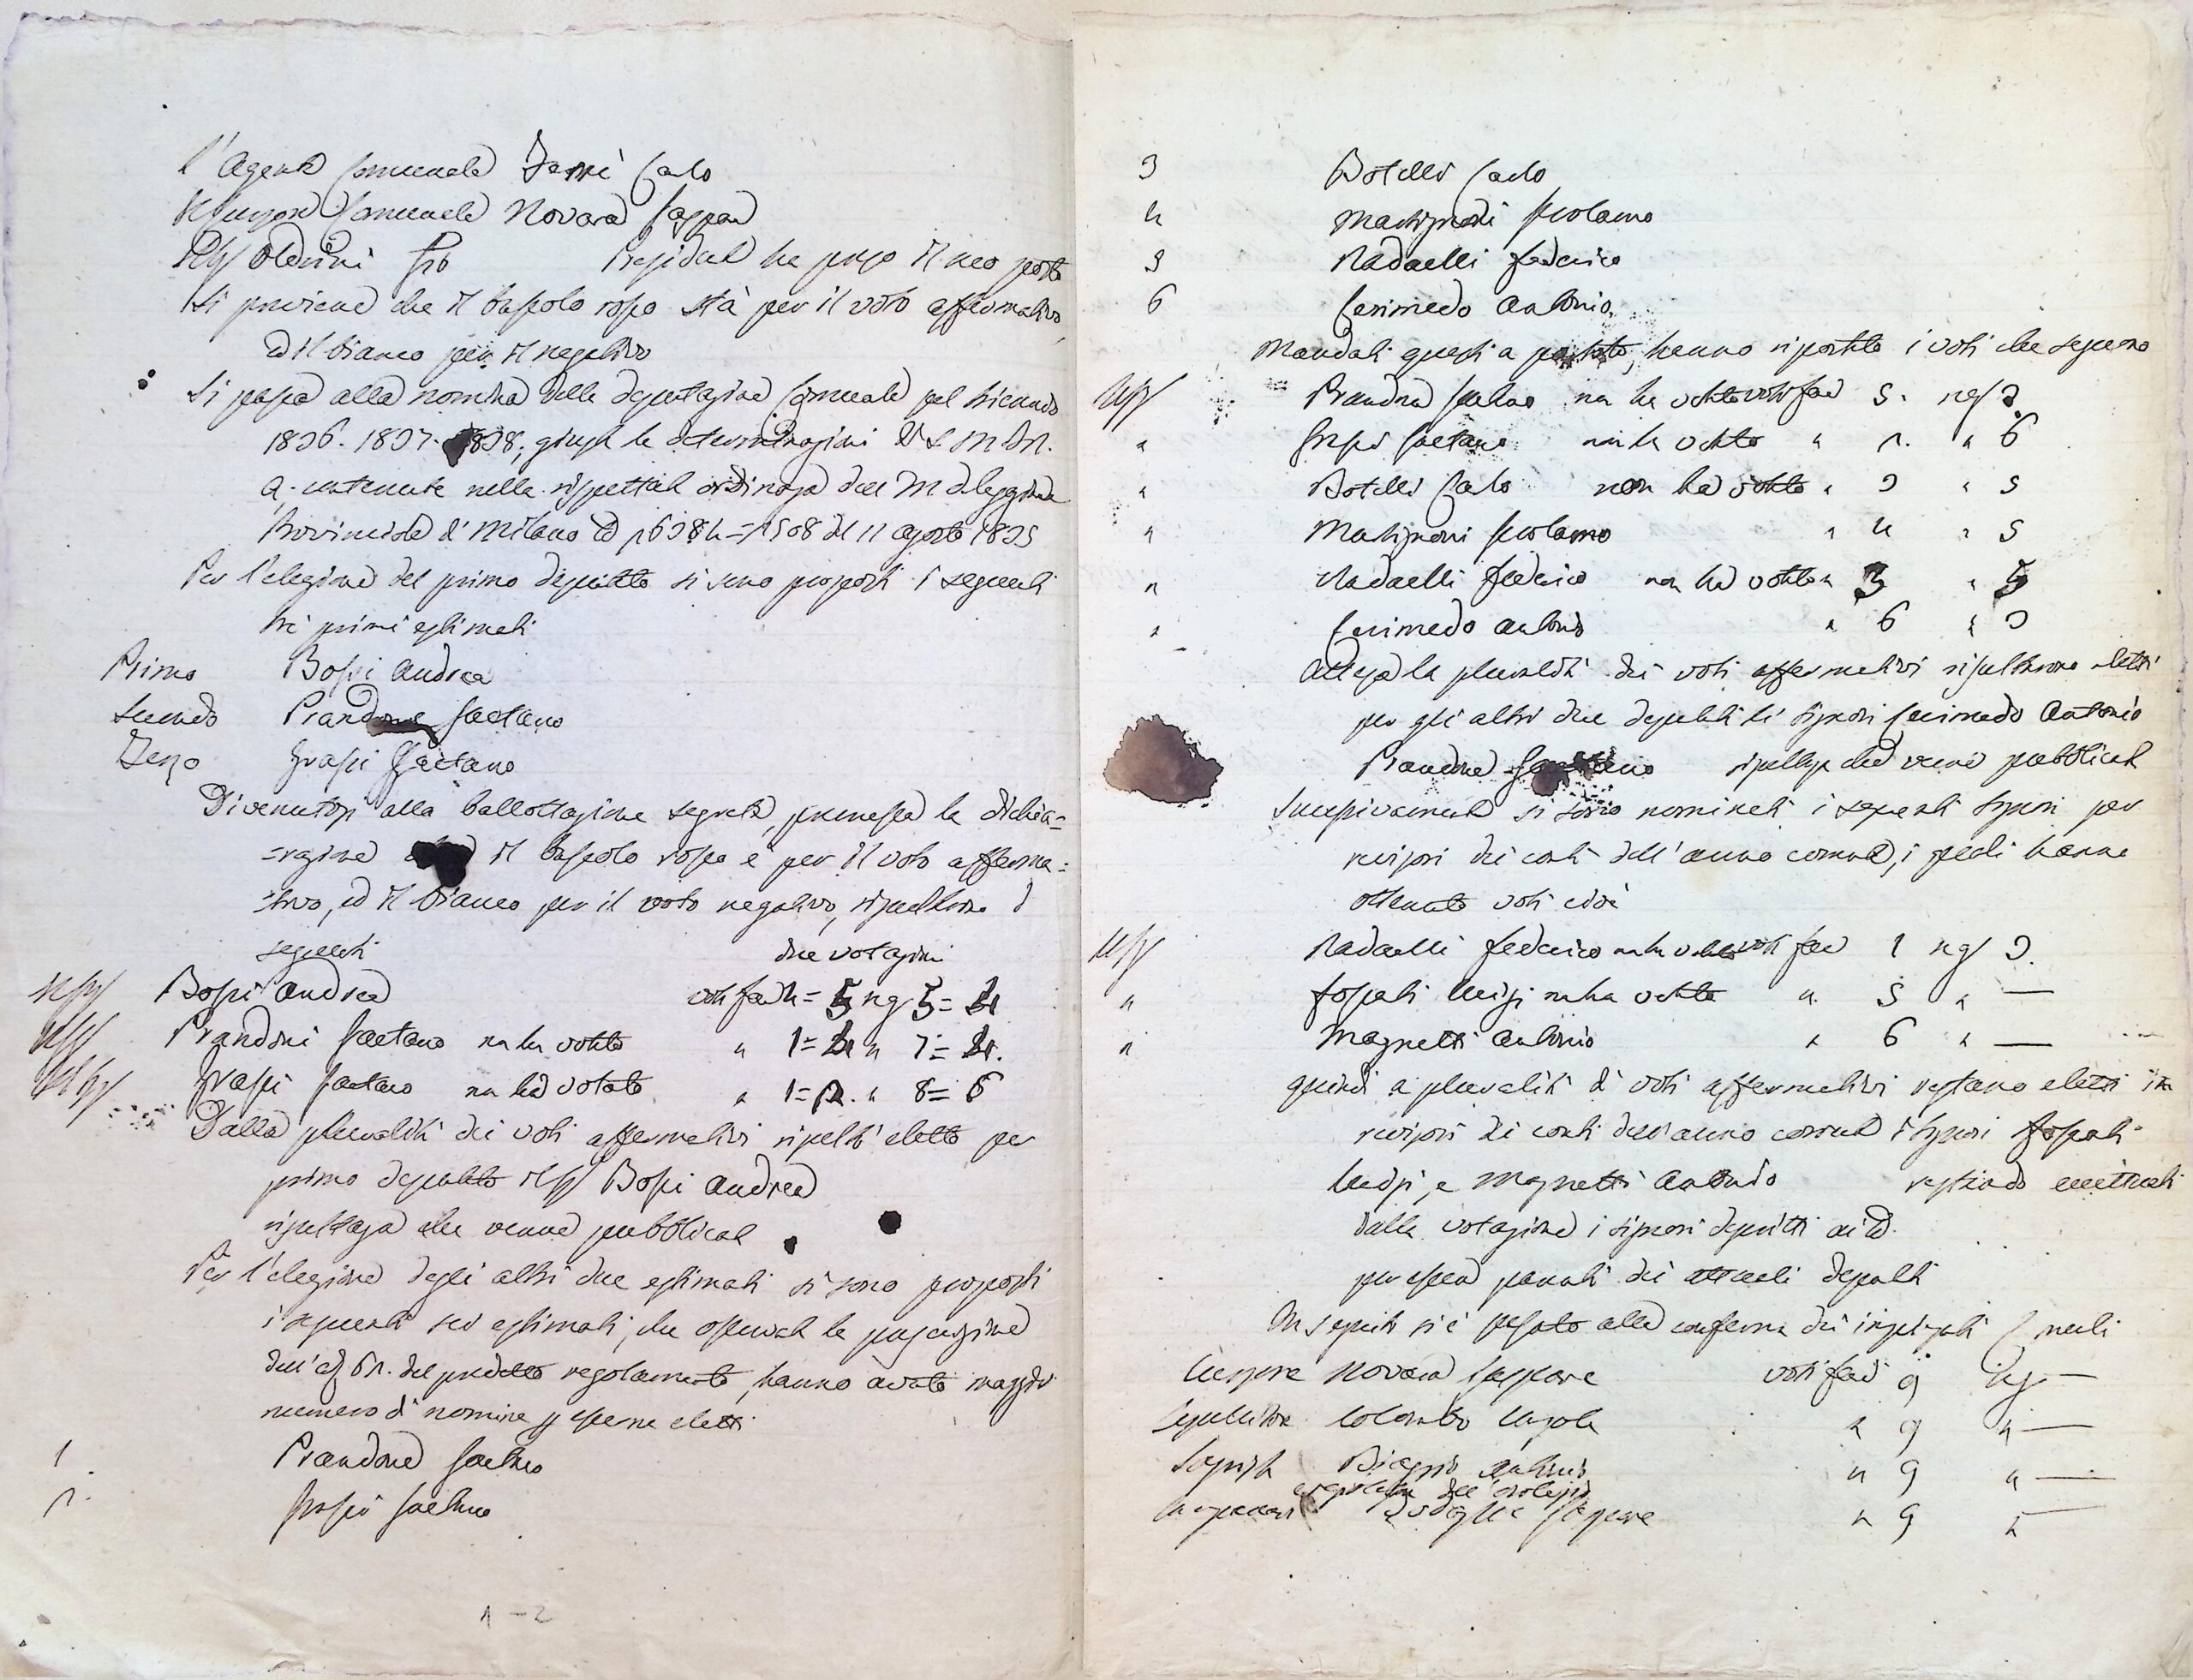 l'Agente Comunale Ferrè Carlo
Il Cursore Comunale Novara Gaspare
Il Sig Oldrini Presidente ha preso il suo posto
Si previene che il bussolo rosso stà per il voto affermativo
ed il bianco per il negativo
Si passa alla nomina della deputazione Comunale pel triennio
1836. 1837. 1838, giusta le determinazioni
contenute nella rispettata ordinanza
Provinciale di Milano 11 agosto 1835
Per l'elezione del primo deputato si sono proposti i seguenti
tre primi estimati
Primo Bossi Andrea
Secondo Prandone Gaetano
Terzo Grassi Gaetano
Divenutosi alla ballottazione segreta, premessa la dichia=
=razione il bussolo rosso è per il voto afferma=
=tivo, ed il bianco per il voto negativo, risultarono i
seguenti due votazioni
Bossi Andrea voti fav 4= 5 neg 5= 4
Prandoni Gaetano non ha votato " 1= " 7=
Grassi Gaetano non ha votato " 1= 2. " 8= 6
Dalla pluralità dei voti affermativi risultò eletto per
primo deputato il Sig Bossi Andrea
risultanza che venne pubblicata
Per l'elezione degli altri due estimati si sono proposti
i seguenti sei estimati, che osservata la
del predetto regolamento, hanno avuto maggior
numero di nomine p essere eletti
1 Prandone Gaetano
2. Grassi Gaetano
3 Botelli Carlo
4 Martignoni Girolamo
5 Radaelli Federico
6 Cerimedo Antonio
Mandati questi a partito, hanno riportato i voti che seguono
Il Sig Prandone Gaetano non ha votato voti fav 5. neg 3.
" Grassi Gaetano non ha votato " 2. " 6
" Botelli Carlo non ha votato " 3 " 5
" Martignoni Girolamo " 4 " 5
" Radaelli Federico non ha votato " 3 " 5
" Cerimedo Antonio " 6 " 3
Attesa la pluralità dei voti affermativi risultarono eletti
per gli altri due deputati li Signori Cerimedo Antonio
Prandone Gaetano che venne pubblicata
Successivamente si sono nominati i seguenti Signori per
revisori dei conti dell'anno corrente, i quali hanno
ottenuto voti cioè
Il Sig Radaelli Federico non ha votato voti fav 1 neg 3.
" Fossati Luigi non ha votato " 5 " —
" Magnetti Antonio " 6 " —
quindi a pluralità di voti affermativi restano eletti in
revisori dei conti dell'anno corrente i Signori Fossati
Luigi, e Magnetti Antonio restando
dalla votazione i signori deputati
per essere parenti dei attuali deputati
In seguito si è passato alla conferma dei
Cursore Novara Gaspare voti fav 9 neg —
Seppellitore Colombo " 9 " —
Biaggio Antonio " 9 " —
dell'orologio
Gaspare " 9 " —
1 - 2